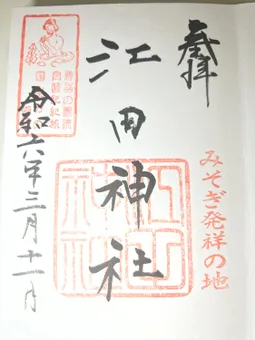 奉拝
みそぎ発祥の地
江田神社
令和六年三月十一月